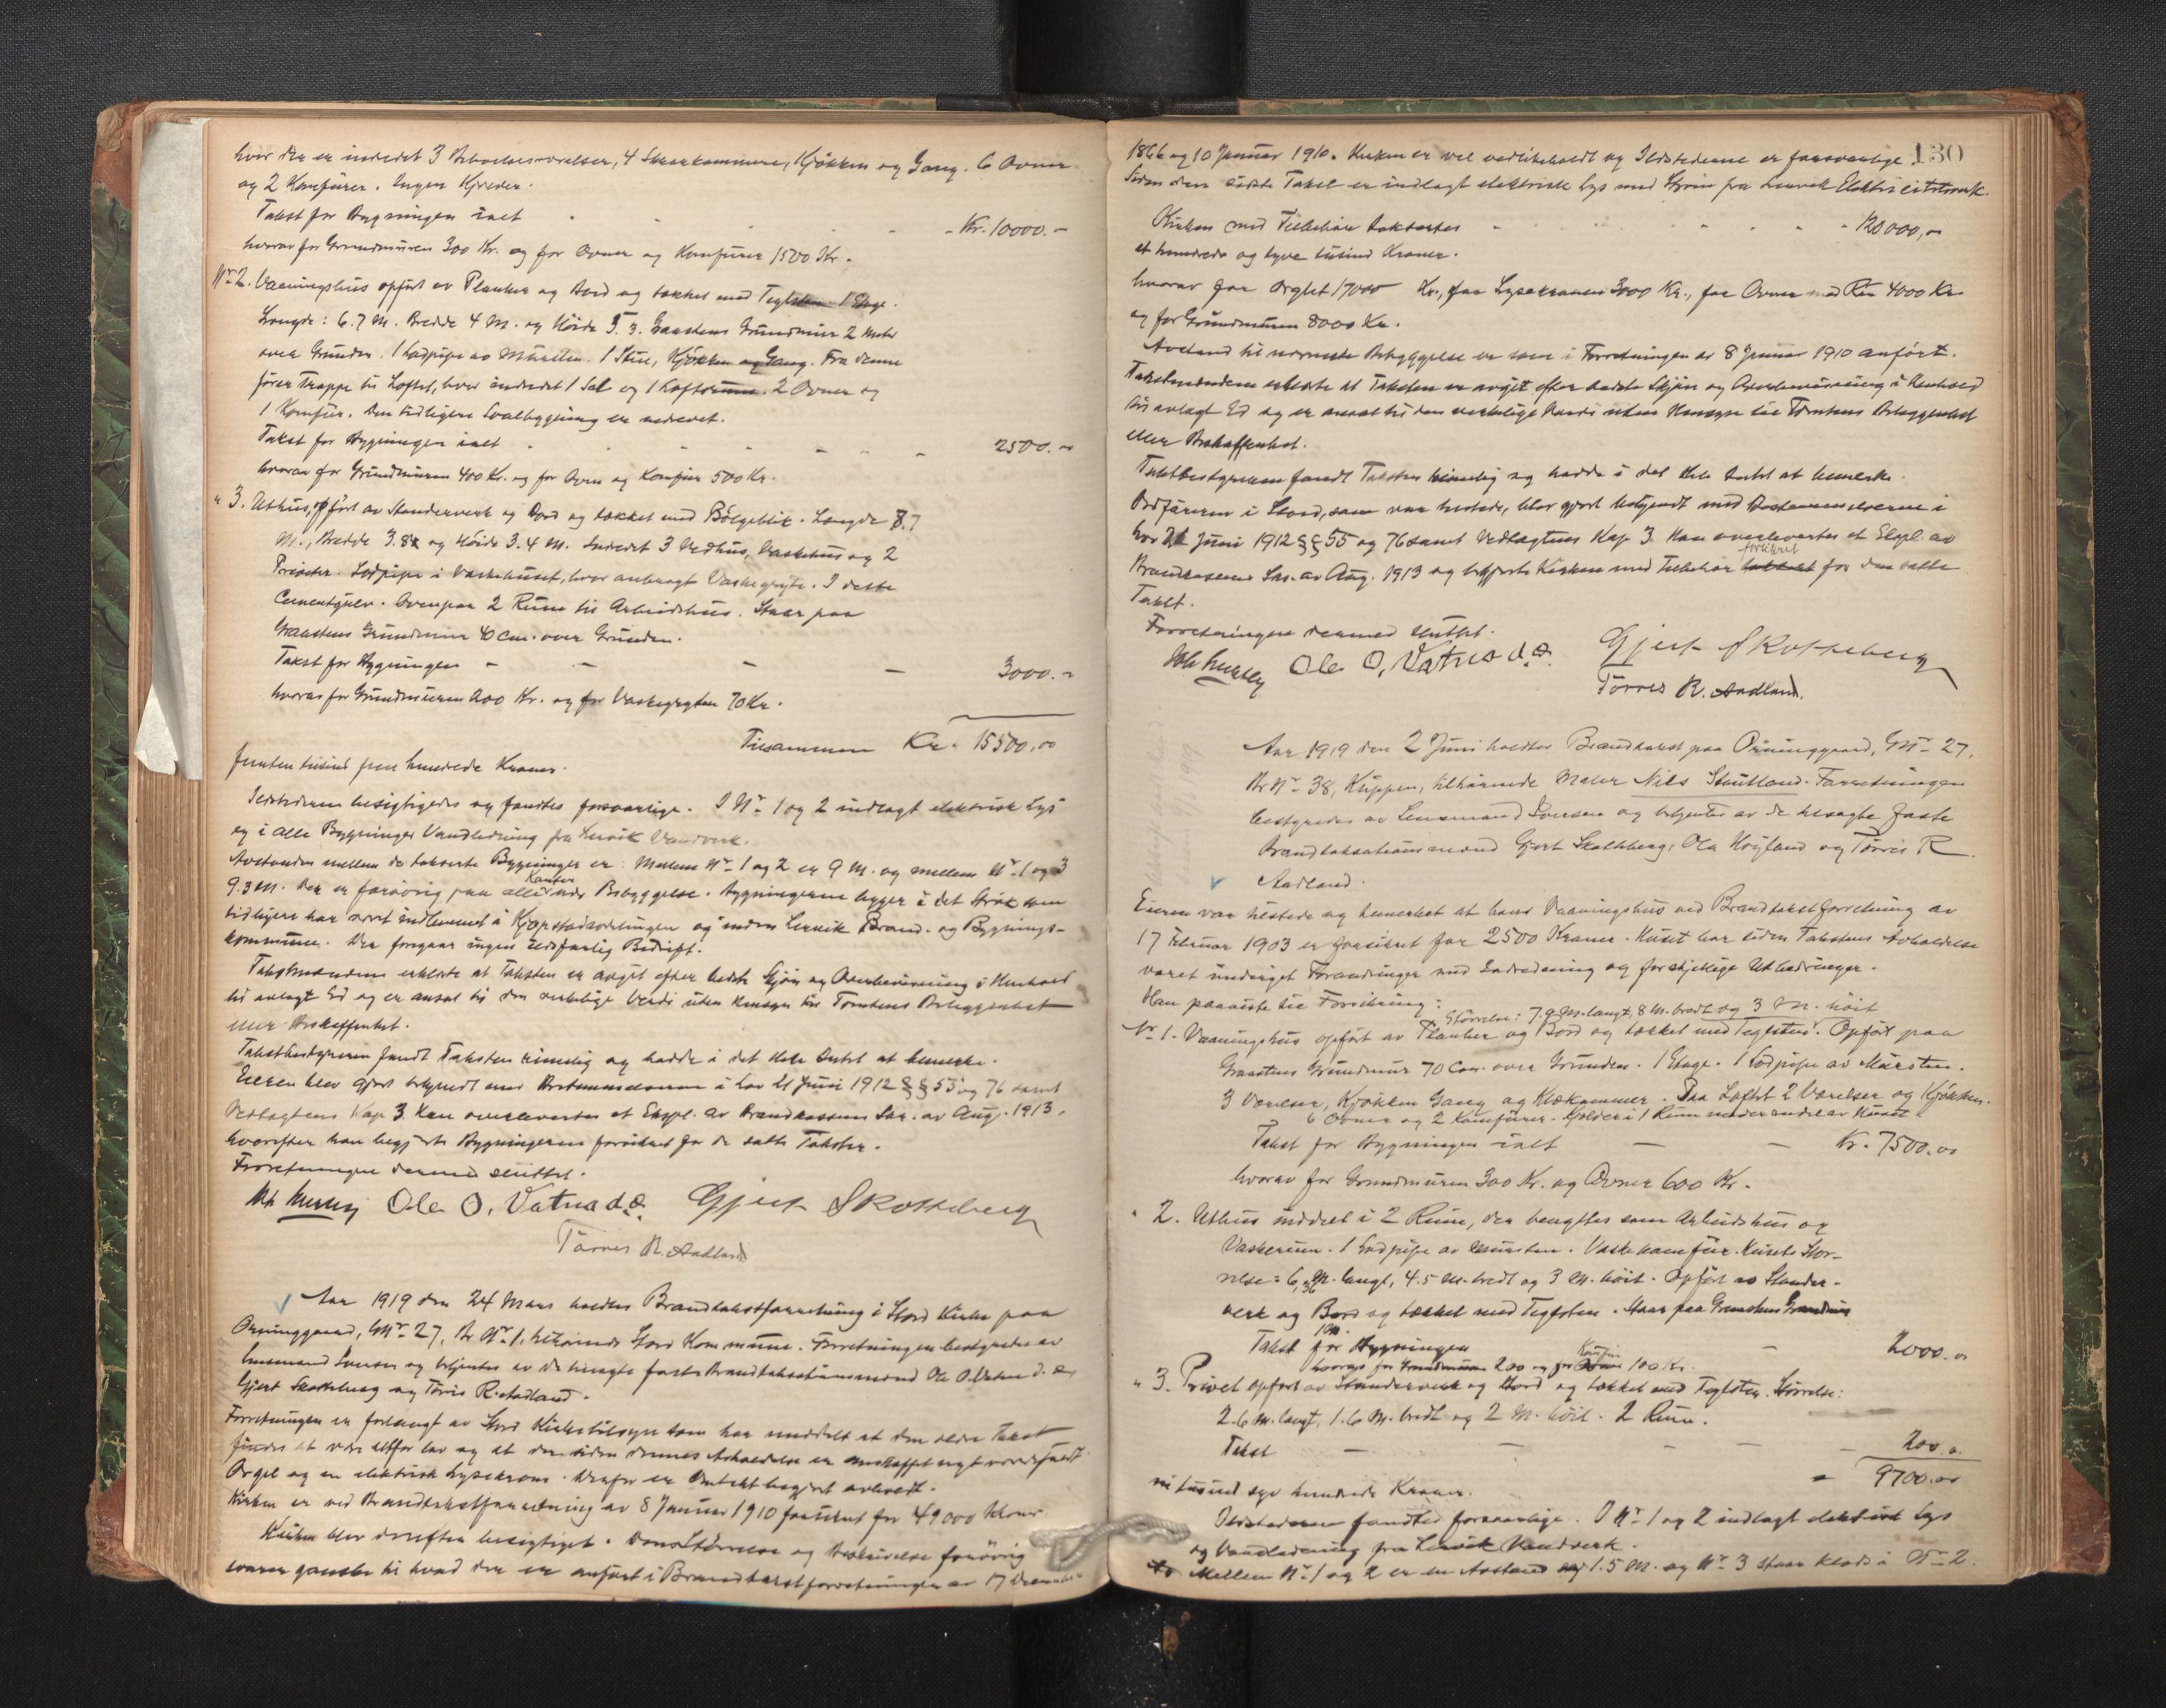 hvor der er indredet 3 Beboelsesværelser, 4 Sovekammere, Kjøkken og Gang. 6 Ovner
og 2 Komfurer. Ingen Kjelder.
Takst for Bygningen ialt - Kr. 10000.-
hvorav for Grundmuren 300 Kr. og for Ovner og Komfurer 1500 Kr.
Nr 2. Vaaningshus opført av Planker og Bord og tækket med Teglsten. 1 Etage.
Længde: 6.7 M. Bredde 4 M. og Høide 5.3. Graastens Grundmur 2 Meter
over Grunden. 1 Lodpipe av Mursten. 1 Stue, Kjøkken og Gang. Fra denne
fører Trappe til Loftet, hvor indredet 1 Sal og 1 Loftsrum. 2 Ovner og
1 Komfur. Den tidligere Svalbygning er nedrevet.
Takst for Bygningen ialt 2500.-
hvorav for Grundmuren 400 Kr. og for Ovne og Komfur 500 Kr.
" 3. Uthus, opført av Standerverk og Bord og tækket med Bølgeblik. Længde 8.7
M., Bredde 3.8 og Høide 3.4 M. Indredet 3 Vedhus, Vaskehus og 2
Priveter. Lodpipe i Vaskehuset, hvor anbragt Vaskegryte. I dette
Cementgulv. Ovenpaa 2 Rum til Arbeidshus. Staar paa
Graastens Grundmur 40 cm. over Grunden.
Takst for Bygningen - - - - 3000.-
hvorav for Grundmuren 200 Kr. og for Vaskegryten 70 Kr.
Tilsammen Kr. 15500,00
femten tusind fem hundrede Kroner.
Ildstederne besigtigedes og fandtes forsvarlige. I Nr 1 og 2 indlagt elektrisk Lys
og i alle Bygninger Vandledning fra Lervik Vandverk.
Avstanden mellem de takserte Bygninger er: Mellem Nr 1 og 2 er 9 M. og mellem Nr 1 og 3
9.3 M. Der er forøvrig paa alle Kanter Bebyggelse. Bygningerne ligger i det Strøk som
tidligere har været indlemmet i Kjøpstadavdelingen og inden Lervik Brand- og Bygnings-
kommune. Der foregaar ingen ildsfarlig Bedrift.
Takstmændene erklærte at Taksten er avgit efter bedste Skjøn og Overbevisning i Henhold
til avlagt Ed og er ansat til den virkelige Verdi uten Hensyn til Tomtens Beliggenhet
eller Beskaffenhet.
Takstbestyreren fandt Taksten rimelig og hadde i det Hele Intet at bemerke.
Eieren blev gjort bekjendt med Bestemmelserne i Lov 21 Juni 1912 §§ 55 og 76 samt
Vedtægtens Kap 3. Han overlevertes et Expl. av Brandkassens Sær. av Aug. 1913,
hvorefter han begjærte Bygningerne forsikret for de satte Takster.
Forretningen dermed sluttet.
Ole O. Vatna d.e. Gjert Skottseberg
Tørres R. Aadland
Aar 1919 den 24 Mars holdtes Brandtakstforretning i Stord Kirke paa
Prsninggaard, Gnr 27, Br Nr 1, tilhørende Stord Kommune. Forretningen bestyredes av
Lensmand Iversen og betjentes av de beeagte faste Brandtakstationsmænd Ole O. Vatna d. æ.
Gjert Skotteberg og Tørris R. Aadland.
Forretningen er forlangt av Stord Kirketilsyn som har meddelt at den ældre Takst
findes at være altfor lav og at der siden dennes Avholdelse er anskaffet nyt værdifuldt
Orgel og en elektrisk Lysekrone. Derfor er Omtakst begjært avholdt.
Kirken er ved Brandtakstforretning av 8 Januar 1910 forsikret for 49000 Kroner
Kirken blev derefter besigtiget. Dens Størrelse og Beskrivelse forøvrig
svarer ganske til hvad der er anført i Brandtakstforretninger av 17 December
130
1866 og 10 Januar 1910. Kirken er vel vedlikeholdt og Ildstederne er forsvarlige.
Siden den sidste Takst er indlagt elektrisk lys med Strøm fra Lervik Elektricitetsverk.
Kirken med Tilbehør taksertes - 120000,00
et hundrede og tyve tusind Kroner.
hvorav for Orglet 17000 Kr., for Lysekronen 3000 Kr., for Ovner med Rør 4000 Kr.
og for Grundmuren 8000 Kr.
Avstand til nærmeste Bebyggelse er som i Forretningen av 8 Januar 1910 anført.
Takstmændene erklærte at Taksten er avgit efter bedste Skjøn og Overbevisning i Henhold
til avlagt Ed og er ansat til den virkelige Værdi uten Hensyn til Tomtens Beliggenhet
eller Beskaffenhet.
Takstbestyreren fandt Taksten rimelig og hadde i det Hele Intet at bemerke.
Ordføreren i Stord, som var tilstede, blev gjort bekjendt med Bestemmelserne i
Lov 21 Juni 1912 §§ 55 og 76 samt Vedtægtens Kap 3. Han overlevertes et Expl. av
Brandkassens Sær. av Aug. 1913 og begjærte Kirken med Tilbehør forsikret for den satte
Takst.
Forretningen dermed sluttet.
Ole O. Vatna d.e. Gjert Skottseberg
Tørres R. Aadland.
Aar 1919 den 2 Juni holdtes Brandtakst paa Prsninggaard, Gnr 27,
Br Nr 38, Kuppen, tilhørende Maler Nils Stautland. Forretningen
bestyredes av Lensmand Iversen og betjentes av de beeagte faste
Brandtaksationsmænd Gjert Skotteberg, Ola Høyland og Tørris R.
Aadland.
Eieren var tilstede og bemerket at hans Vaaningshus ved Brandtakstforretning av
17 Februar 1903 er forsikret for 2500 Kroner. Huset har siden Takstens Avholdelse
været undergit Forandringer med Indredning og forskjellige Utbedringer.
Han paaviste til Forsikring:
Størrelse: 7.9 M. langt, 8 M. bredt og 3 M. høit
Nr 1. Vaaningshus opført av Planker og Bord og tækket med Teglsten. Opført paa
Graastens Grundmur 70 Cm. over Grunden. 1 Etage. 1 Lodpipe av Mursten.
3 Værelser, Kjøkken Gang og Klækammer. Paa Loftet 2 Værelser og Kjøkken.
6 Ovner og 2 Komfurer. Kjelder i 1 Rum under endel av Huset
Takst for Bygningen ialt - - Kr. 7500.00
hvorav for Grundmuren 300 Kr. og Ovner 600 Kr.
" 2. Uthus inddelt i 2 Rum, der benyttes som Arbeidshus og
Vaskerum. 1 Lodpipe av Mursten. Vaskekomfur. Husets Stør-
relse: 6,36 M. langt, 4.5 M. bredt og 3 M. høit. Opført av Stander-
verk og Bord og tækket med Teglsten. Staar paa Graastens Grundmur
1 M.
Takst for Bygningen - 2000.00
hvorav for Grundmuren 200 og for Komfur 100 Kr.
" 3. Privet opført av Standerverk og Bord og tækket med Teglsten. Størrelse:
2.6 M. langt, 1.6 M. bredt og 2 M. høit. 2 Rum.
Takst - - - - - 200.0
9700.00
ni tusind syv hundrede Kroner.
Ildstederne fandtes forsvarlige. I Nr 1 og 2 indlagt elektrisk lys
og Vandledning fra Lervik Vandverk.
Mellem Nr 1 og 2 er en Avstand av 1.5 M. og Nr 3 staar klods i Nr 2.